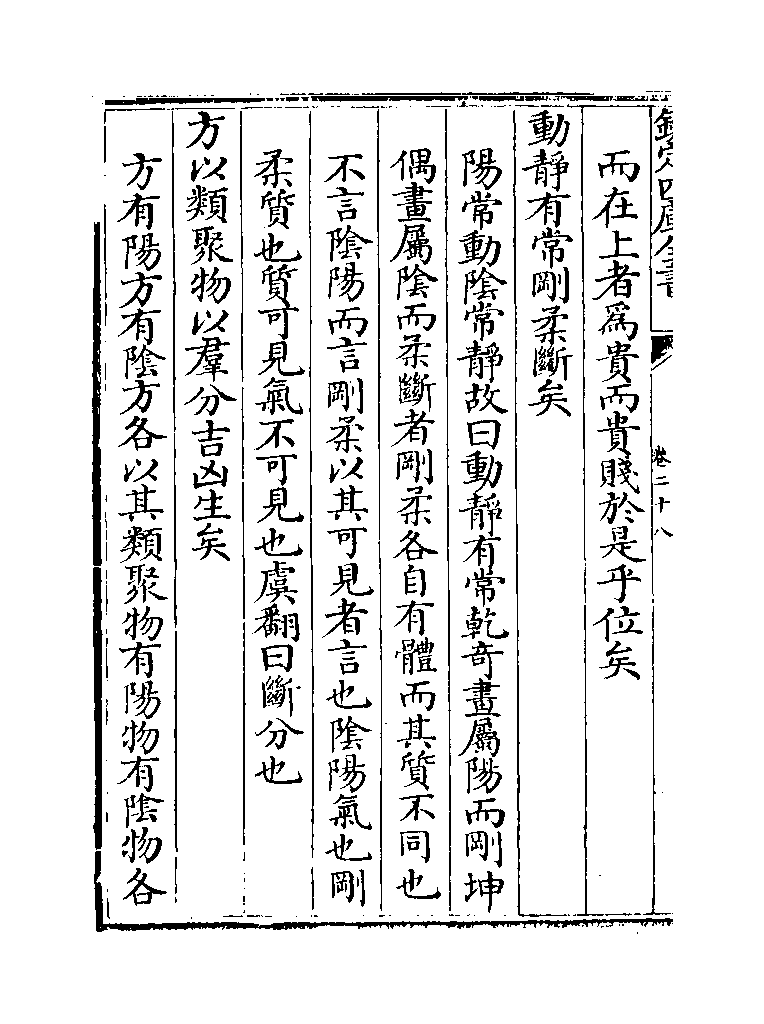 欽定四庫全書
卷二十八
而在上者為貴而貴賤於是乎位矣
動靜有常剛柔斷矣
陽常動陰常靜故曰動靜有常乾奇畫屬陽而剛坤
偶畫屬陰而柔斷者剛柔各自有體而其質不同也
不言陰陽而言剛柔以其可見者言也陰陽氣也剛
柔質也質可見氣不可見也虞翻曰斷分也
方以類聚物以羣分吉凶生矣
方有陽方有陰方各以其類聚物有陽物有陰物各